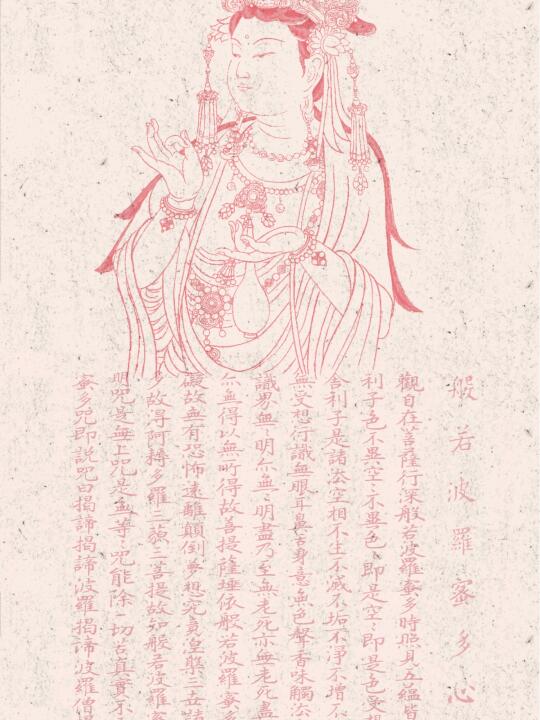 般若波羅蜜多心
觀自在菩薩行深般若波羅蜜多時照見五蘊皆
利子色不異空〻不異色〻即是空〻即是色受想
舍利子是諸法空相不生不滅不垢不淨不增不
無受想行識無眼耳鼻舌身意無色聲香味觸法
識界無〻明亦無〻明盡乃至無老死亦無老死盡
亦無得以無所得故菩提薩埵依般若波羅蜜多
礙故無有恐怖遠離顛倒夢想究竟涅槃三世諸
多故得阿耨多羅三藐三菩提故知般若波羅蜜
明咒是無上咒是無等〻咒能除一切苦真實不
蜜多咒即説咒曰揭諦揭諦波羅揭諦波羅僧揭